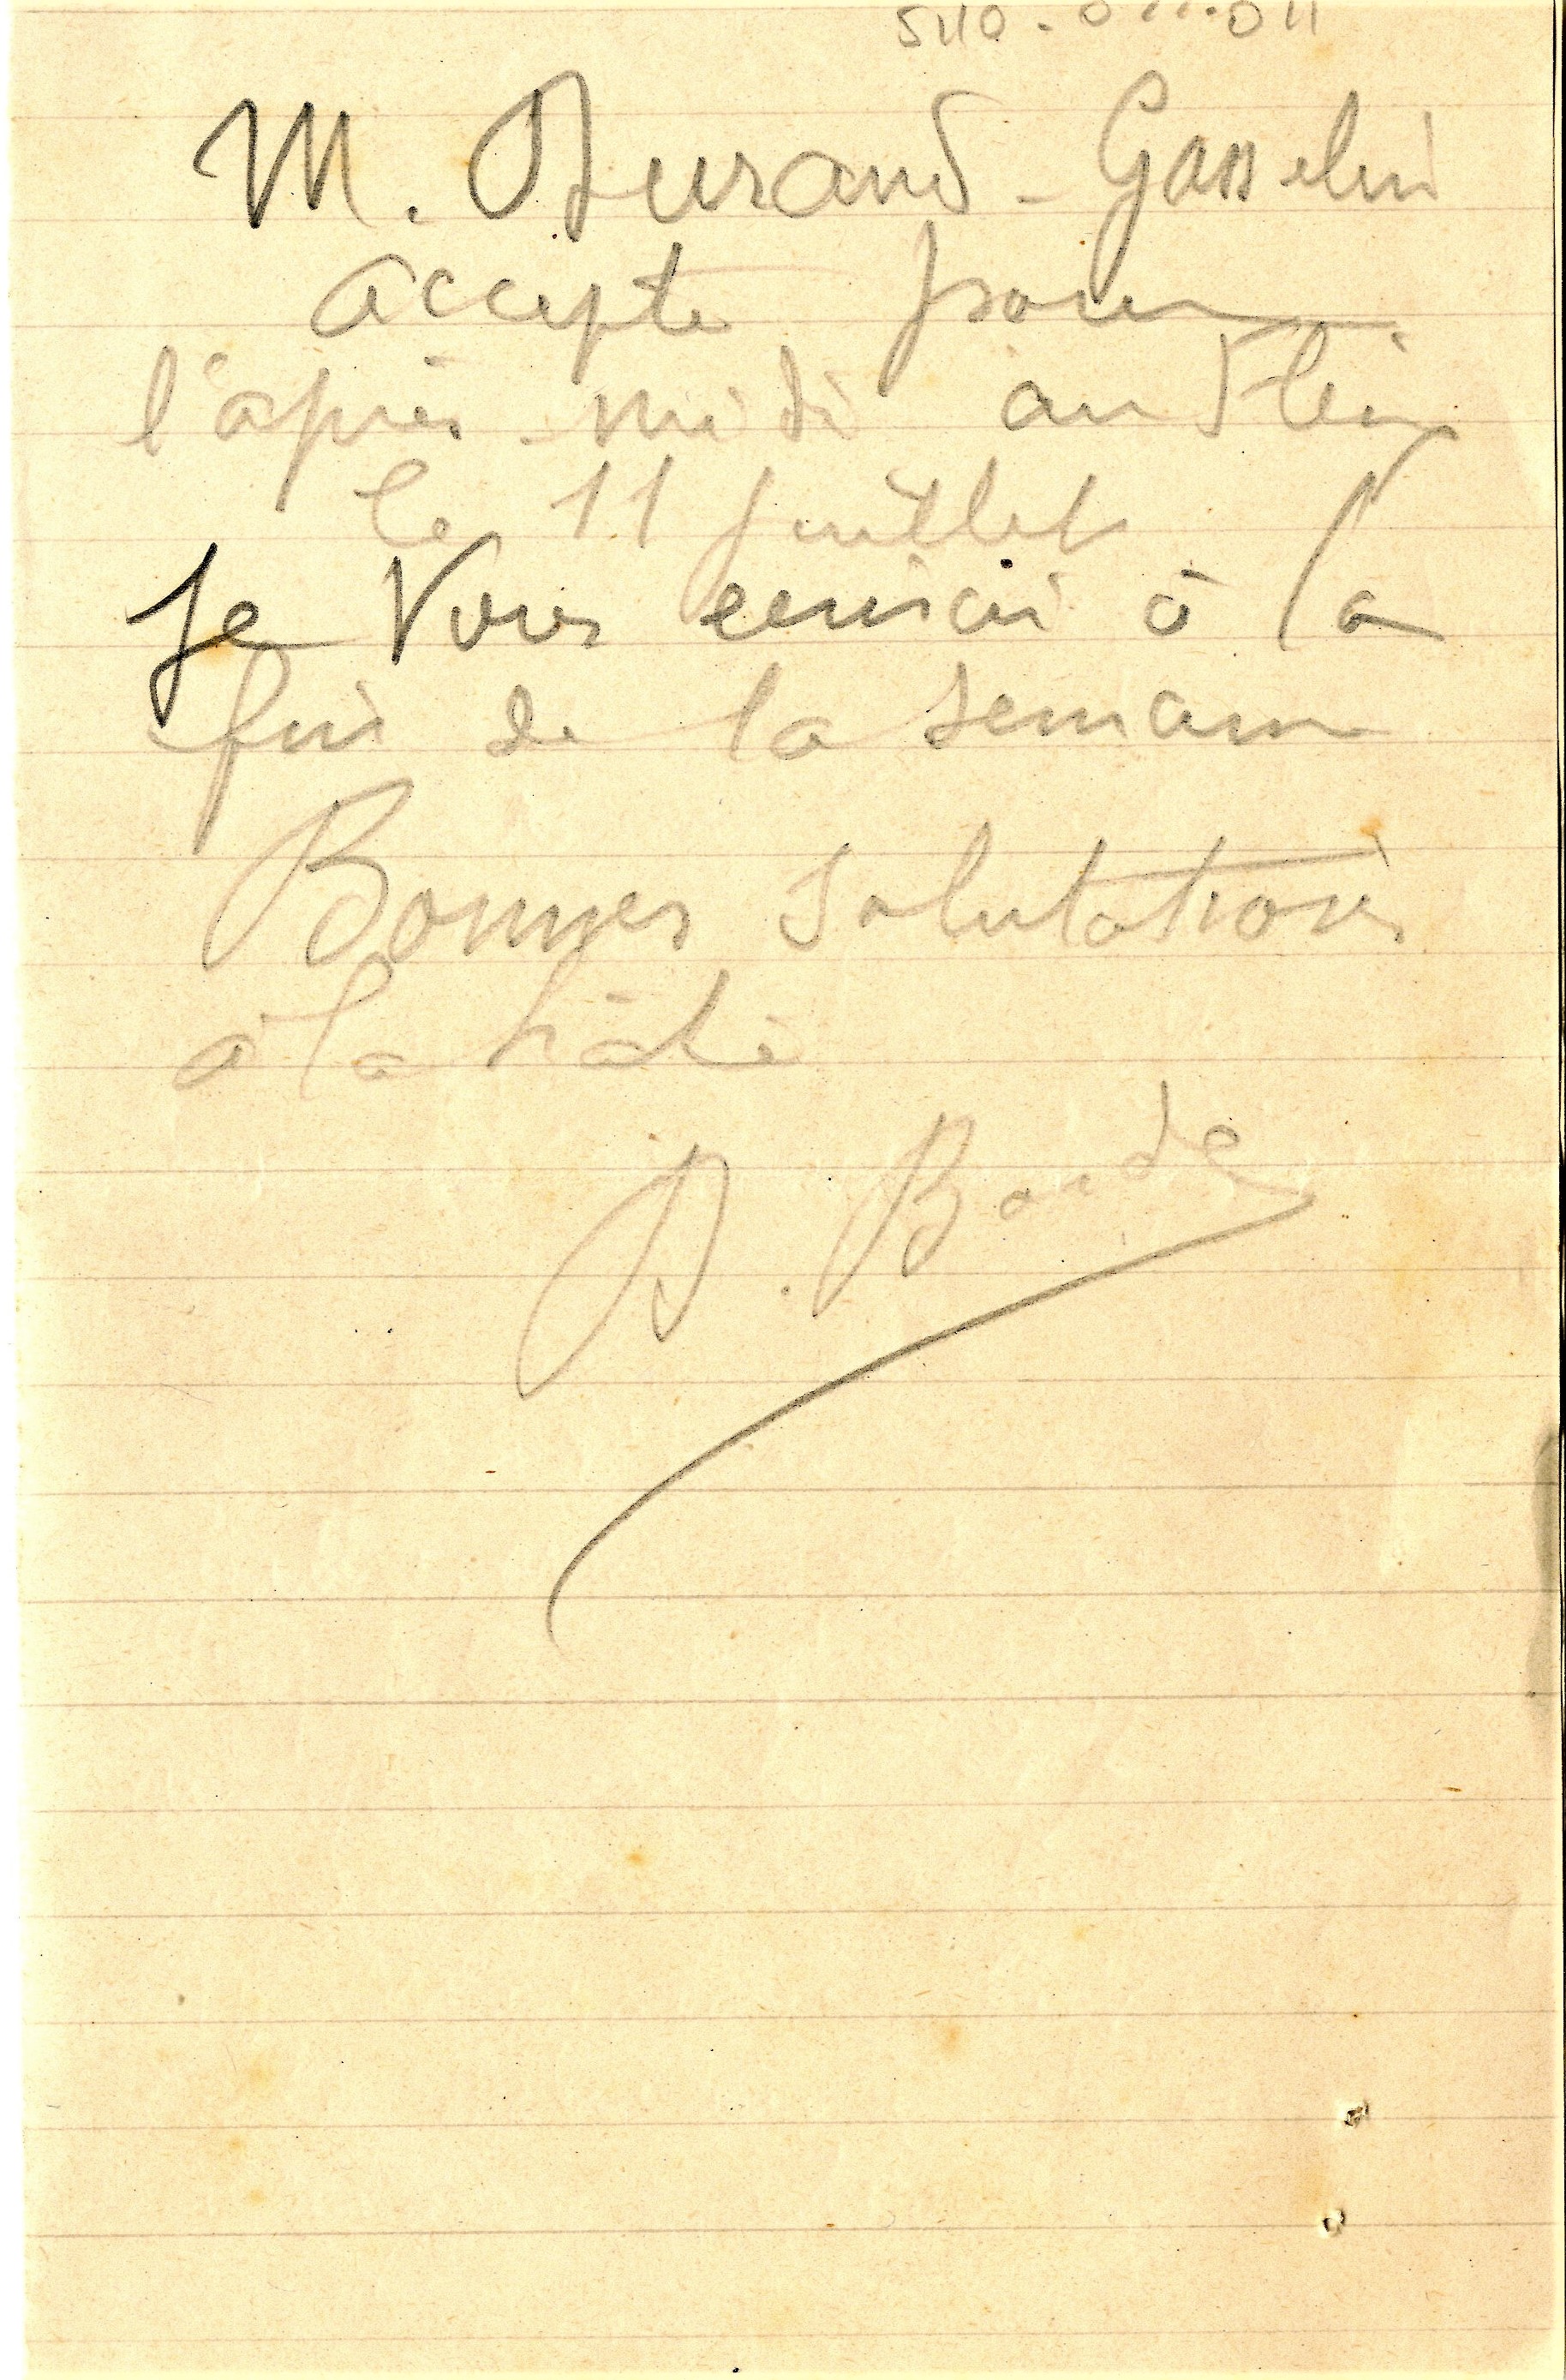 M. Durand-Gasselin
accepte pour
l'après-midi au
le 11 juillet
Je vous écrirai à la
fin de la semaine
Bonnes salutations
à la hâte